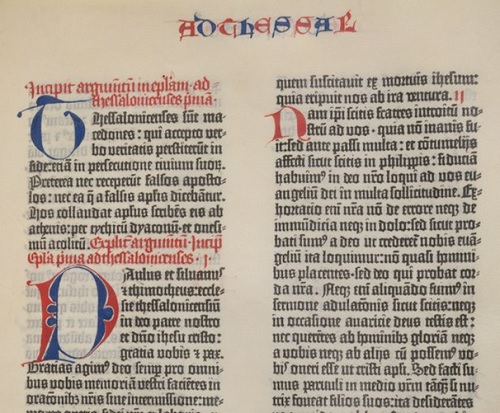 AD THESSAL
Incipit argumētū in ep̄lam ad
thessalonicenses prima.
Thessalonicenses sūt ma-
cedones: qui accepto ver-
bo veritatis perstiterūt in
fide: etiā in persecutione civium suoꝝ.
Preterea nec receperūt falsos aposto-
los: nec ea q̄ a falsis ap̄lis dicebātur.
Hos collaudat ap̄lus scribēs eis ab
athenis: per tychicū dyaconū et onesi-
mū acolitū. Explic̄ argumētū. Incip̄
Ep̄la prima ad thessalonicenses. I
Paulus et siluanus
et thimotheus: eccle-
sie thessalonicensiū
in deo patre nostro
et dn̄o ihesu cristo:
gratia vobis et pax.
Gratias agim9 deo semp pro omni-
bus vobis memoriā vestri facientes in
orationib9 nr̄is sine intermissione: me-
quem suscitavit ex mortuis ihesum:
quia eripuit nos ab ira ventura. II
Nam ip̄i scitis fratres introitū no-
strū ad vos. quia nō inanis fu-
it: sed ante passi multa: et cōtumelijs
affecti sicut scitis in philippis: fiduciā
habuim9 in deo nr̄o loqui ad vos eu-
angeliū dei in multa sollicitudine. Ex-
hortatio em̄ nr̄a nō de errore neqꝫ de
immūdicia neqꝫ in dolo: sed sicut pro-
bati sum9 a deo ut crederet̄ nobis euā-
geliū ita loquimur: nō quasi homini-
bus placentes. sed deo qui probat cor-
da nr̄a. Neqꝫ em̄ aliqūdo fuim9 in
sermone adulatōnis sicut scitis: neqꝫ
in occasione avaricie deus testis est:
nec querētes ab hominib9 gloriā neqꝫ
a vobis neqꝫ ab alijs cū possem9 vo-
bis oneri esse ut cristi ap̄li. Sed facti su-
mus parvuli in medio vr̄m tāq̄ si nu-
trix foveat filios suos: ita desiderātes